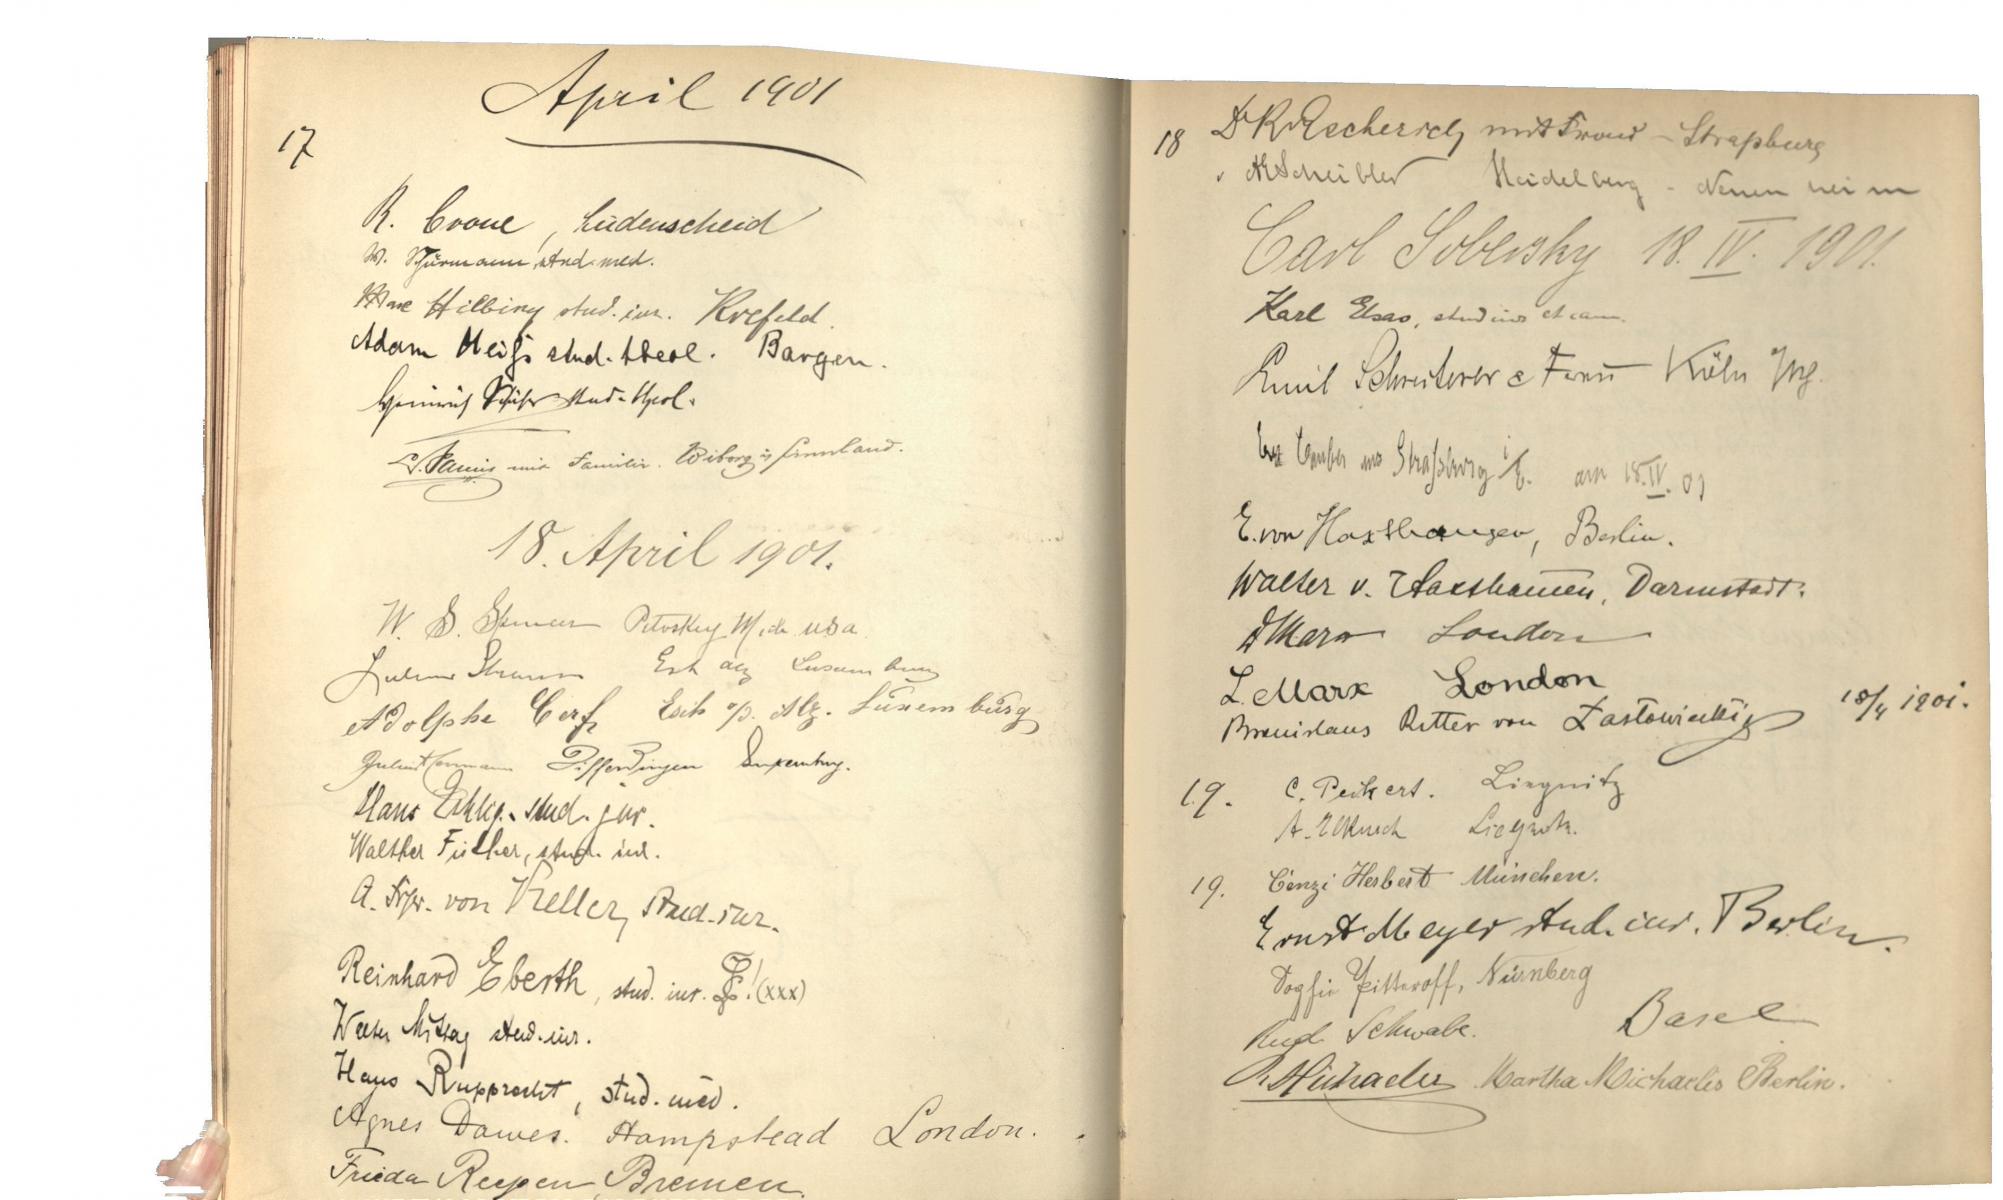 April 1901
17
R. Crone, Lüdenscheid
W. Schürmann, stud. med.
Hilbing stud. iur. Krefeld.
Adam Heiß stud. theol. Bargen.
Heinrich stud. theol.
mit Familie. Wiborg i Finnland.
18. April 1901.
W. S. Spencer Petoskey Mich USA
Esch Luxemburg
Adolphe Cerf Esch a/. Alz. Luxemburg
Differdingen Luxemburg.
Hans stud. jur.
Walther Fischer, stud. iur.
A. Frhr. von Keller, stud. iur.
Reinhard Eberth, stud. iur. ! (xxx)
Walter Mittag stud. iur.
Hans Rupprecht, stud. med.
Agnes Dawes. Hampstead London.
Frieda Reepen, Bremen.
18 Dr K Escherich mit Frau – Straßburg
" Scheibler Heidelberg - Neuenheim
Carl Sobersky 18. IV. 1901.
Karl Elsas, stud iur et cam.
Emil Schreiterer & Frau Köln
aus Straßburg i/E. am 18. IV. 01
E. von Haxthausen, Berlin.
Walter v. Haxthausen, Darmstadt.
Marx London
L. Marx London
Bronislaus Ritter von 18/4 1901.
19. C. Peikert. Liegnitz
Liegnitz.
19. Cenzi Herbert München.
Ernst Meyer stud. iur. Berlin.
Pitteroff, Nürnberg
Rud. Schwabe. Basel
Michaelis Martha Michaelis Berlin.